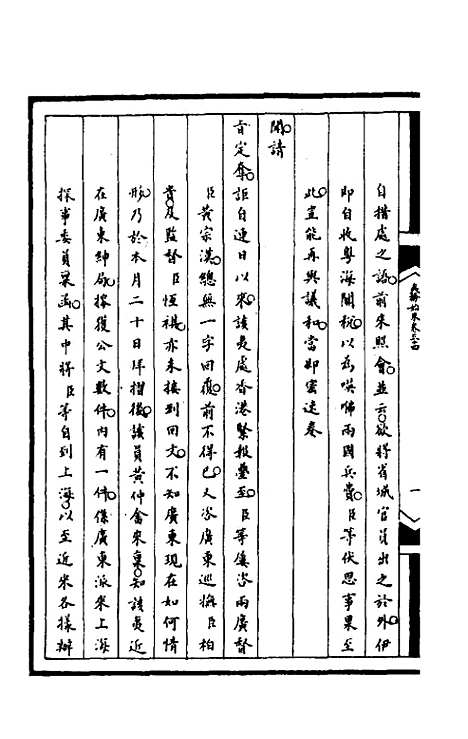 籌辦夷務始末卷三四
一
自措處之語前來照會並云欲將省城官員出之於外伊
即自收粵海關稅以為㗸咈兩國兵費臣等伏思事果至
此豈能再與議和當即密速奏
聞請
旨定奪詎自連日以來該夷處香港緊報疊至臣等屢咨兩廣督
臣黃宗漢總無一字回復前不得已又咨廣東巡撫臣柏
貴及監督臣恆祺亦未接到回文不知廣東現在如何情
形乃於本月二十日拜摺後該員黃仲畬來稟知該員近
在廣東紳局搜獲公文數件內有一件係廣東派來上海
探事委員稟函其中將臣等自到上海以至近來各樣辦